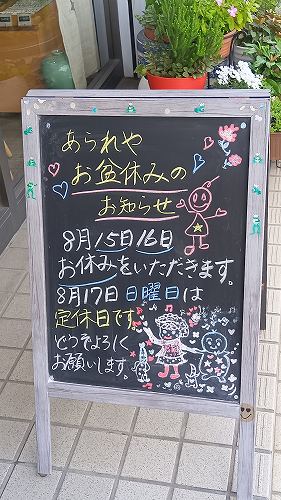 あられや
お盆休みの
お知らせ
8月15日16日
お休みをいただきます。
8月17日 日曜日は
定休日です
どうぞよろしく
お願いします